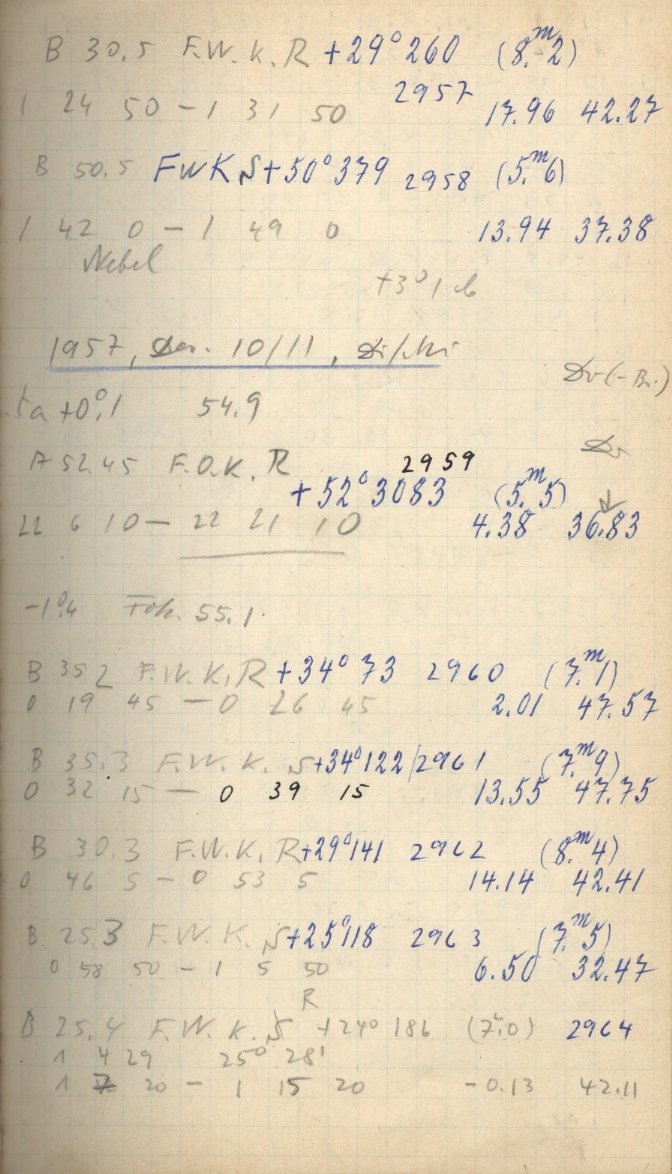 B 30.5 F.W.K.R +29° 260 (8.ᵐ2)
2957
1 24 50 – 1 31 50 17.96 42.27
B 50.5 FWKS +50° 379 2958 (5.ᵐ6)
1 42 0 – 1 49 0 13.94 37.38
Nebel
+3°
1957, Dez. 10/11, Di/Mi
Dr (-Br.)
ta +0°,1 54.9
Dr
A 52.45 F.O.K.R 2959
+52° 3083 (5.ᵐ5) ↓
22 6 10 – 22 21 10 4.38 36.83
-1°,4 Fok. 55.1
B 35.2 F.W.K.R +34° 73 2960 (7.ᵐ1)
0 19 45 – 0 26 45 2.01 47.57
B 35.3 F.W.K.S +34° 122 / 2961 (7.ᵐ9)
0 32 15 – 0 39 15 13.55 47.75
B 30.3 F.W.K.R +29° 141 2962 (8.ᵐ4)
0 46 5 – 0 53 5 14.14 42.41
B 25.3 F.W.K.S +25° 118 2963 (7.ᵐ5)
0 58 50 – 1 5 50 6.50 32.47
R
B 25.4 F.W.K.S +24° 186 (7.0) 2964
1 4 29 25° 28'
1 20 – 1 15 20 -0.13 42.11